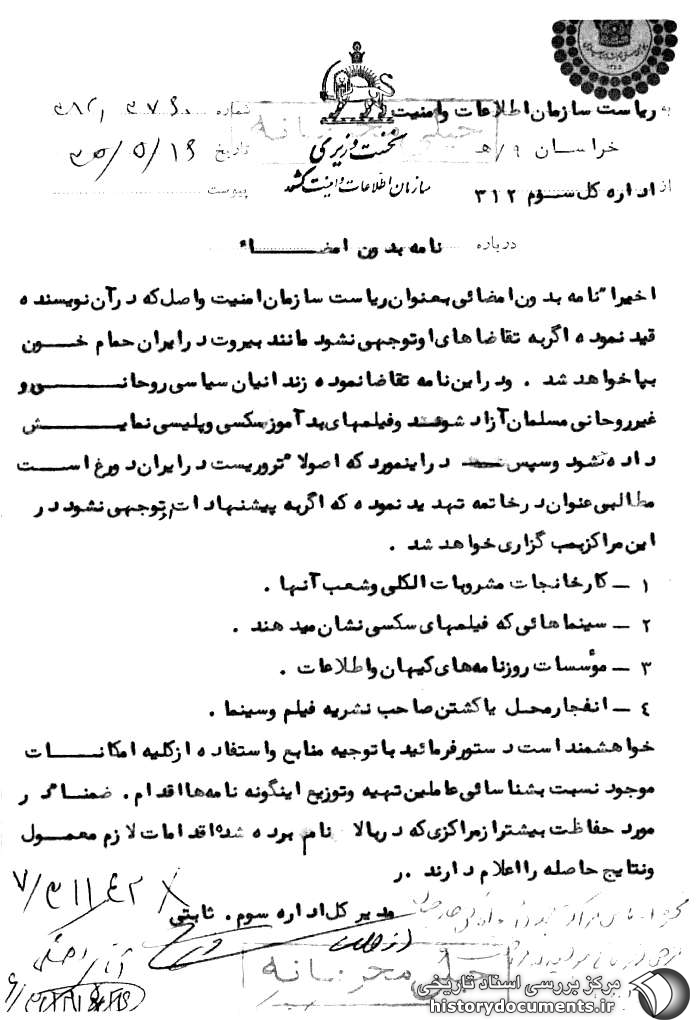 به ریاست سازمان اطلاعات وامنیت
خراسان ۹/هـ
از اداره کل سوم ۳۱۲
نخست وزیری
سازمان اطلاعات و امنیت کشور
شماره
تاریخ ۳۵/۵/۱۶
پیوست
خیلی محرمانه
درباره نامه بدون امضاء
اخیرا" نامه بدون امضائی بعنوان ریاست سازمان امنیت واصل که در آن نویسنده
قید نموده اگر به تقاضاهای او توجهی نشود مانند بیروت در ایران حمام خون
بپا خواهد شد . ودر این نامه تقاضا نموده زندانیان سیاسی روحانی و
غیر روحانی مسلمان آزاد شوند وفیلمهای بد آموز سکسی وپلیسی نمایش
داده نشود وسپس در اینمورد که اصولا" تروریست در ایران دروغ است
مطالبی عنوان در خاتمه تهدید نموده که اگر به پیشنهادات او توجهی نشود در
این مراکز بمب گزاری خواهد شد .
۱ ـ کارخانجات مشروبات الکلی وشعب آنها .
۲ ـ سینماهائی که فیلمهای سکسی نشان میدهند .
۳ ـ مؤسسات روزنامه های کیهان واطلاعات .
٤ ـ انفجار محل یا کشتن صاحب نشریه فیلم وسینما .
خواهشمند است دستور فرمائید با توجیه منابع واستفاده از کلیه امکانات
موجود نسبت بشناسائی عاملین تهیه وتوزیع اینگونه نامه ها اقدام . ضمنا" در
مورد حفاظت بیشتر از مراکزی که در بالا نام برده شده اقدامات لازم معمول
ونتایج حاصله را اعلام دارند . ر
مدیر کل اداره سوم . ثابتی
از طرف
خیلی محرمانه
مرکز بررسی اسناد تاریخی
historydocuments.ir